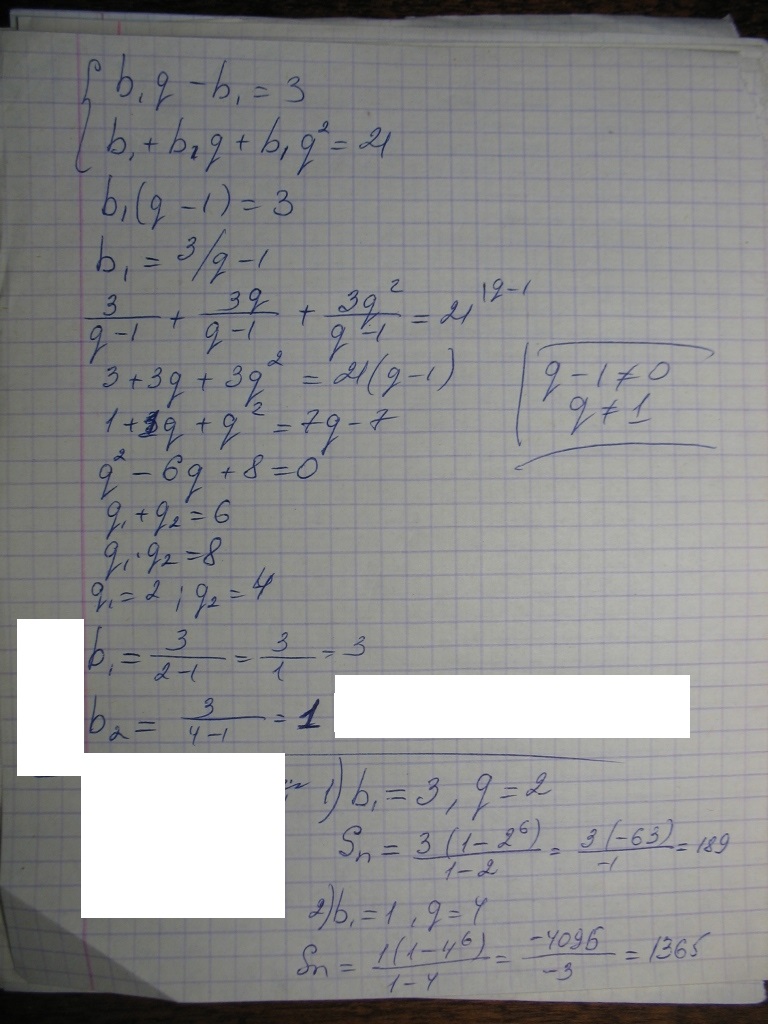 b₁q − b₁ = 3
b₁ + b₁q + b₁q² = 21
b₁(q − 1) = 3
b₁ = 3/q−1
3/(q−1) + 3q/(q−1) + 3q²/(q−1) = 21 |q−1
3 + 3q + 3q² = 21(q−1)
q − 1 ≠ 0
q ≠ 1
1 + 1q + q² = 7q − 7
q² − 6q + 8 = 0
q₁ + q₂ = 6
q₁ · q₂ = 8
q₁ = 2 ; q₂ = 4
b₁ = 3/(2−1) = 3/1 = 3
b₂ = 3/(4−1) = 1
1) b₁ = 3, q = 2
Sn = 3(1−2⁶)/(1−2) = 3(−63)/−1 = 189
2) b₁ = 1, q = 4
Sn = 1(1−4⁶)/(1−4) = −4095/−3 = 1365